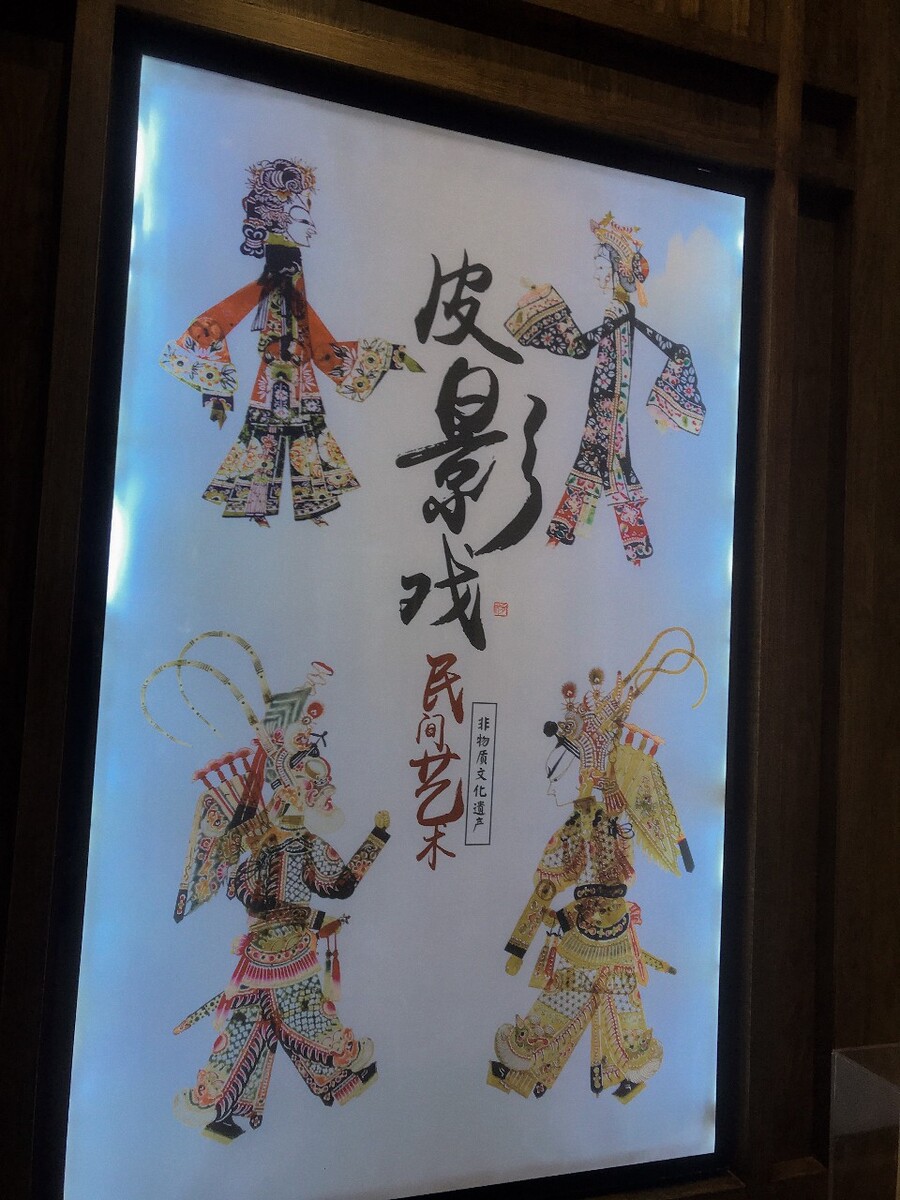 皮影戏
民间艺术
非物质文化遗产